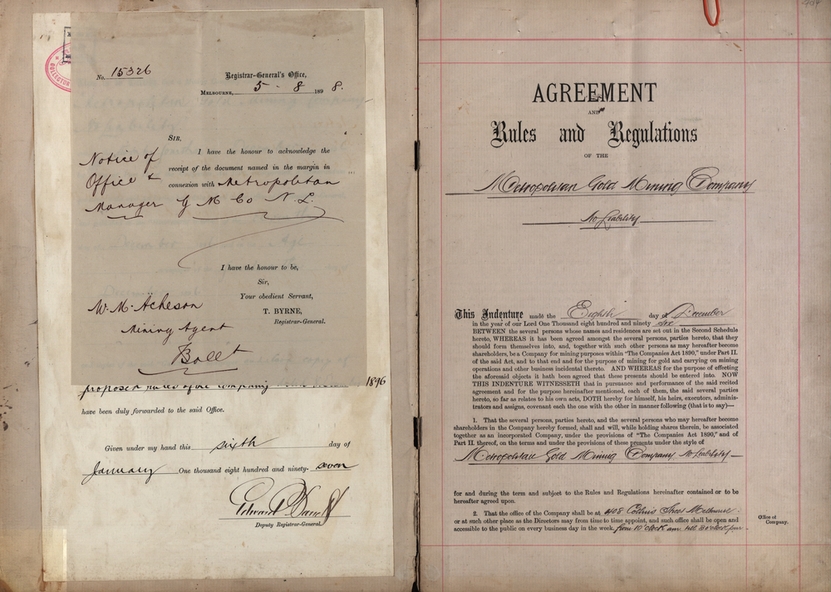 No. 15326
Registrar-General's Office,
MELBOURNE, 5 - 8 1898.
SIR,
Notice of
Office &
Manager
I have the honour to acknowledge the
receipt of the document named in the margin in
connexion with Metropolitan
G M Co N L.
I have the honour to be,
Sir,
Your obedient Servant,
T. BYRNE,
Registrar-General.
W. M. Acheson
Mining Agent
Ballt
proposed rules of the Company
1896
have been duly forwarded to the said Office.
Given under my hand this sixth day of
January One thousand eight hundred and ninety-seven
Deputy Registrar-General.
AGREEMENT
AND
Rules and Regulations
OF THE
Metropolitan Gold Mining Company
No Liability
This Indenture made the Eighth day of December
in the year of our Lord One Thousand eight hundred and ninety six
BETWEEN the several persons whose names and residences are set out in the Second Schedule
hereto, WHEREAS it has been agreed amongst the several persons, parties hereto, that they
should form themselves into, and, together with such other persons as may hereafter become
shareholders, be a Company for mining purposes within "The Companies Act 1890," under Part II.
of the said Act, and to that end and for the purpose of mining for gold and carrying on mining
operations and other business incidental thereto. AND WHEREAS for the purpose of effecting
the aforesaid objects it hath been agreed that these presents should be entered into. NOW
THIS INDENTURE WITNESSETH that in pursuance and performance of the said recited
agreement and for the purpose hereinbefore mentioned, each of them, the said several parties
hereto, so far as relates to his own acts, DOTH hereby for himself, his heirs, executors, adminis-
trators and assigns, covenant each the one with the other in manner following (that is to say)—
1. That the several persons, parties hereto, and the several persons who may hereafter become
shareholders in the Company hereby formed, shall and will, while holding shares therein, be associated
together as an incorporated Company, under the provisions of "The Companies Act 1890," and of
Part II. thereof, on the terms and under the provisions of these presents under the style of
Metropolitan Gold Mining Company No Liability
for and during the term and subject to the Rules and Regulations hereinafter contained or to be
hereafter agreed upon.
2. That the office of the Company shall be at 408 Collins Street Melbourne
or at such other place as the Directors may from time to time appoint, and such office shall be open and
accessible to the public on every business day in the week, from 10 o'clock am till
Office of
Company.